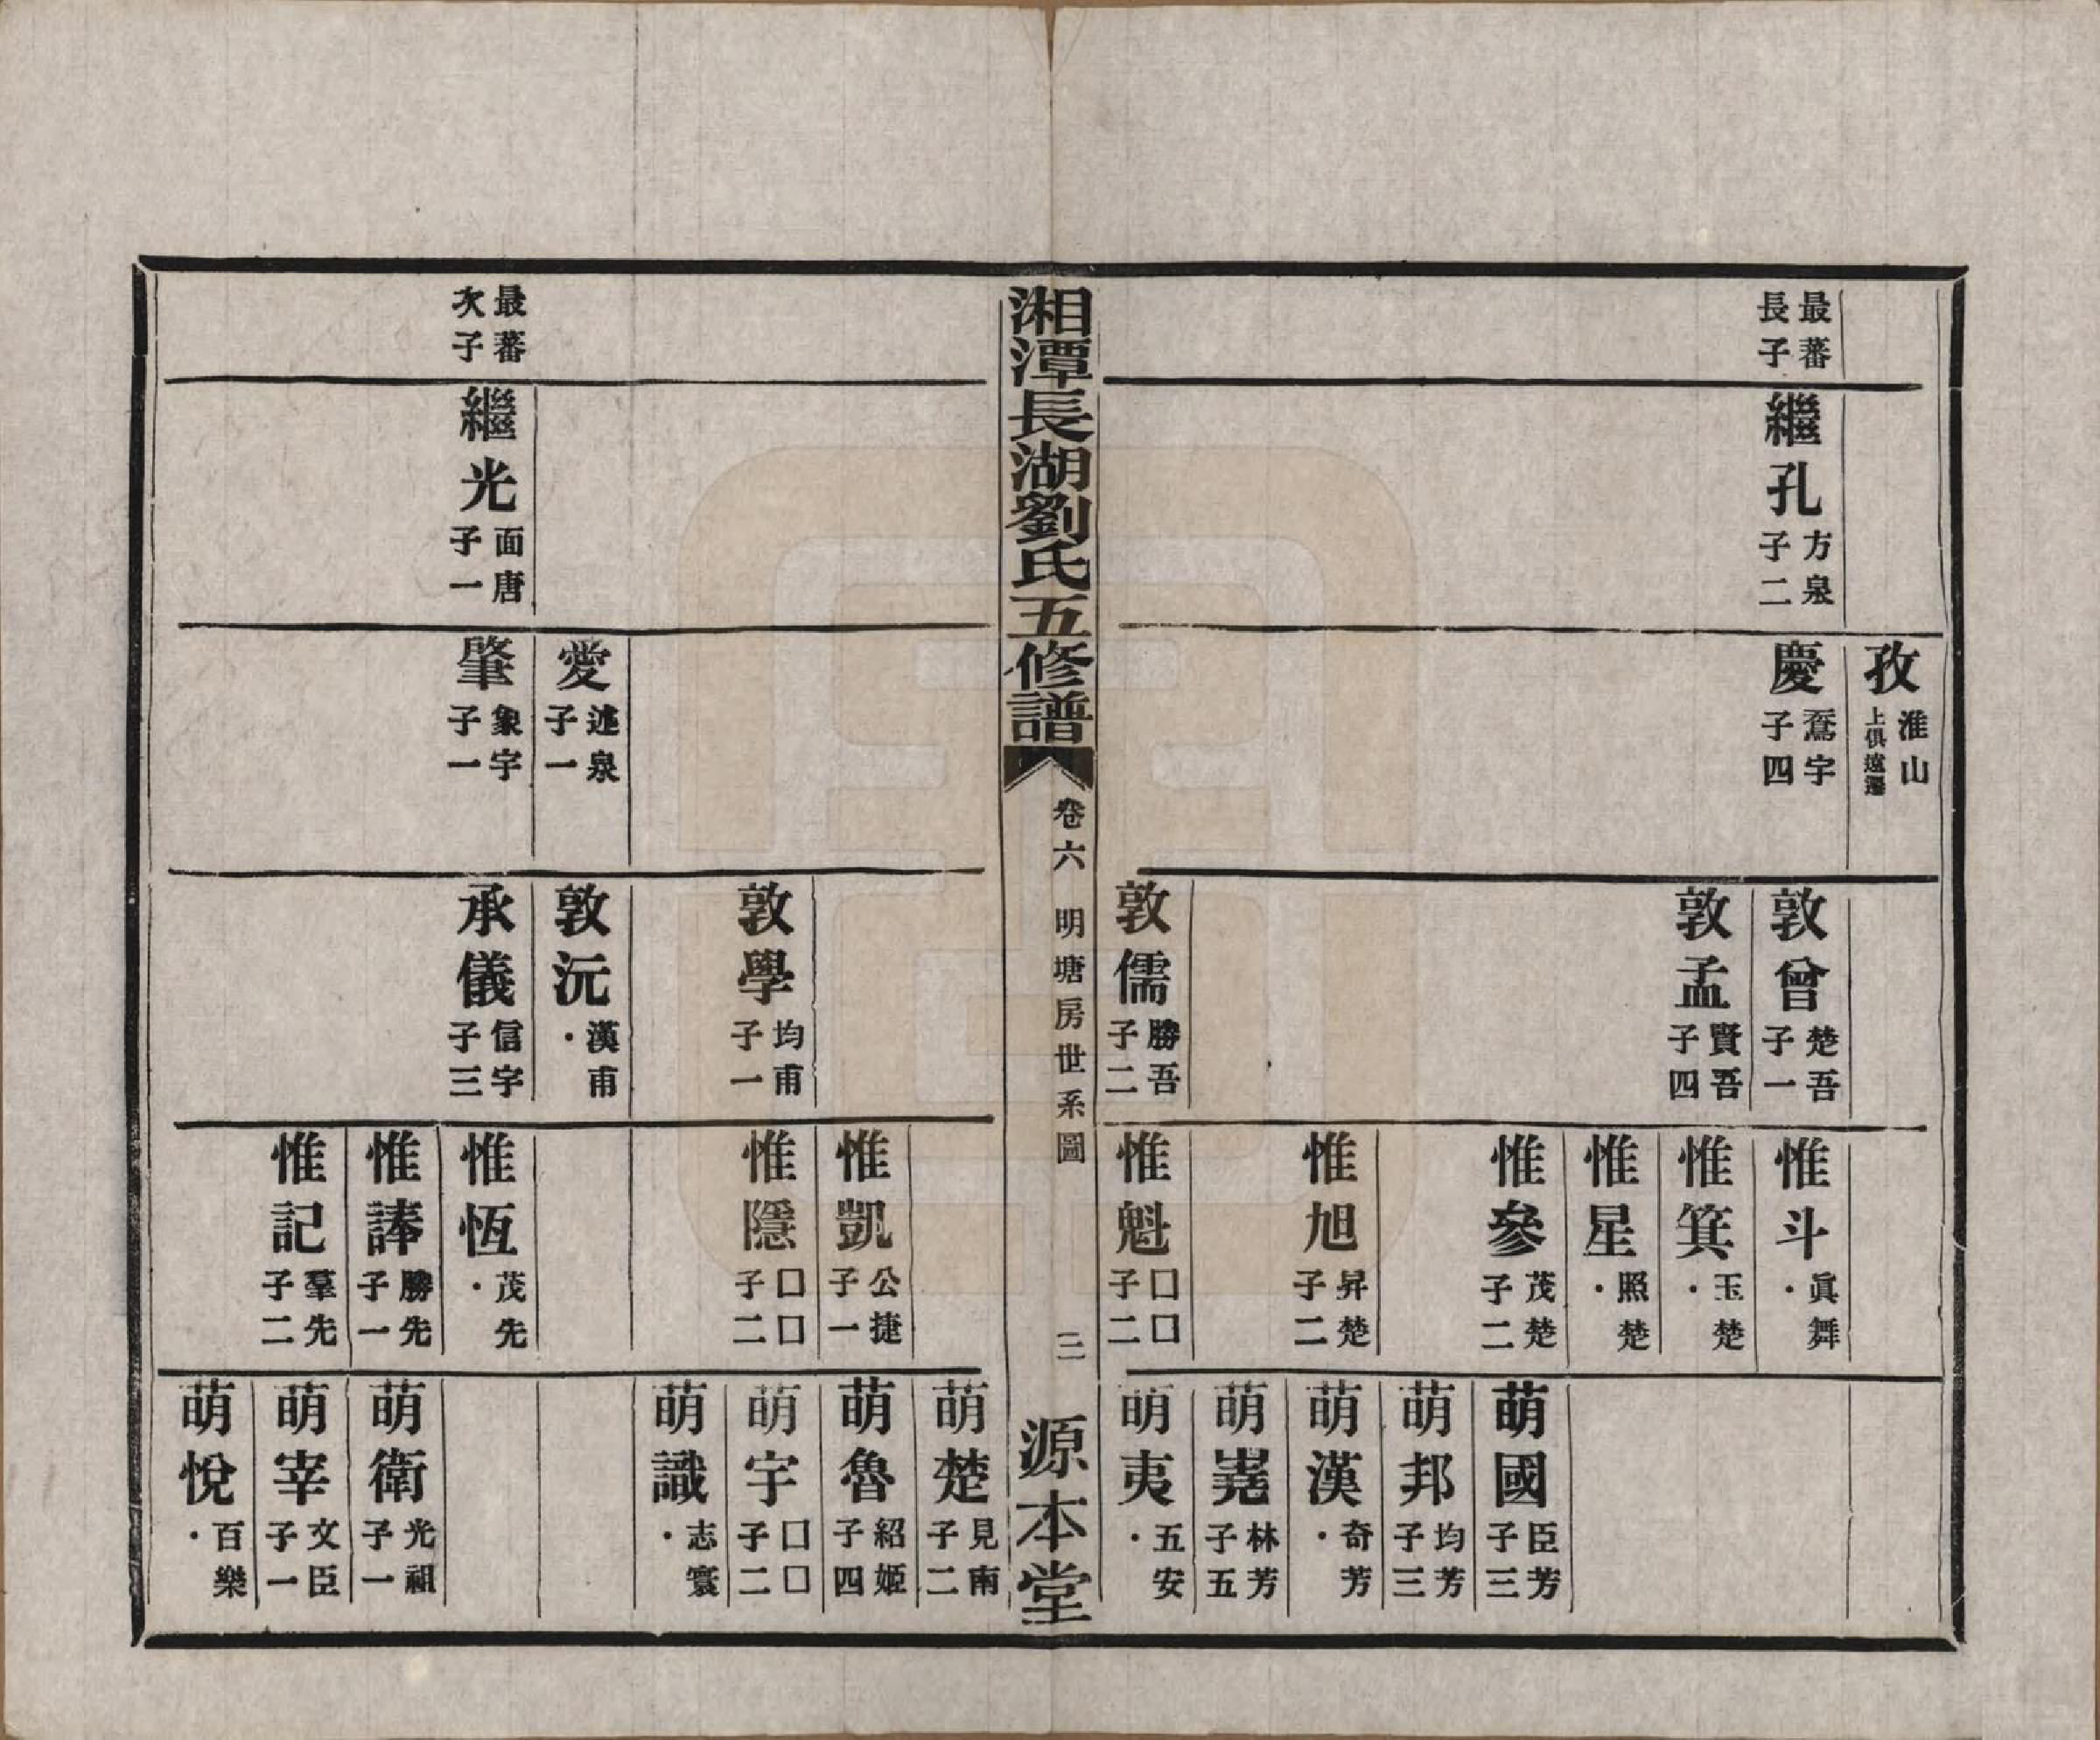 最蕃
長子
繼孔 方泉 子二
孜 淮山 上俱遠遷
慶 子四
敦曾 楚吾 子一
敦孟 賢吾 子四
敦儒 勝吾 子二
惟斗 眞舞 ·
惟箕 玉楚 ·
惟星 照楚 ·
惟參 茂楚 子二
惟旭 昇楚 子二
惟魁 囗囗 子二
萌國 臣芳 子三
萌邦 均芳 子三
萌漢 奇芳 ·
萌嵬 林芳 子五
萌夷 五安 ·
湘潭長湖劉氏五修譜
卷六 明塘房世系圖
三
源本堂
最蕃
次子
繼光 面唐 子一
愛 述泉 子一
肇 象宇 子一
敦學 均甫 子一
敦沅 漢甫 ·
承儀 信宇 子三
惟凱 公捷 子一
惟隱 囗囗 子二
惟恆 茂先 ·
惟諱 勝先 子一
惟記 羣先 子二
萌楚 見南 子二
萌魯 紹姬 子四
萌宇 囗囗 子二
萌識 志寰 ·
萌衛 光祖 子一
萌宰 文臣 子一
萌悅 百樂 ·